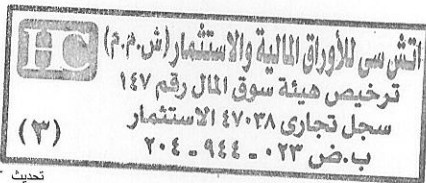 HC
اتش سى للأوراق المالية والاستثمار (ش.م.م)
ترخيص هيئة سوق المال رقم ١٤٧
سجل تجارى ٤٧٠٣٨ الاستثمار
ب.ض ٠٢٣ - ٩٤٤ - ٢٠٤
(٣)
تحديث